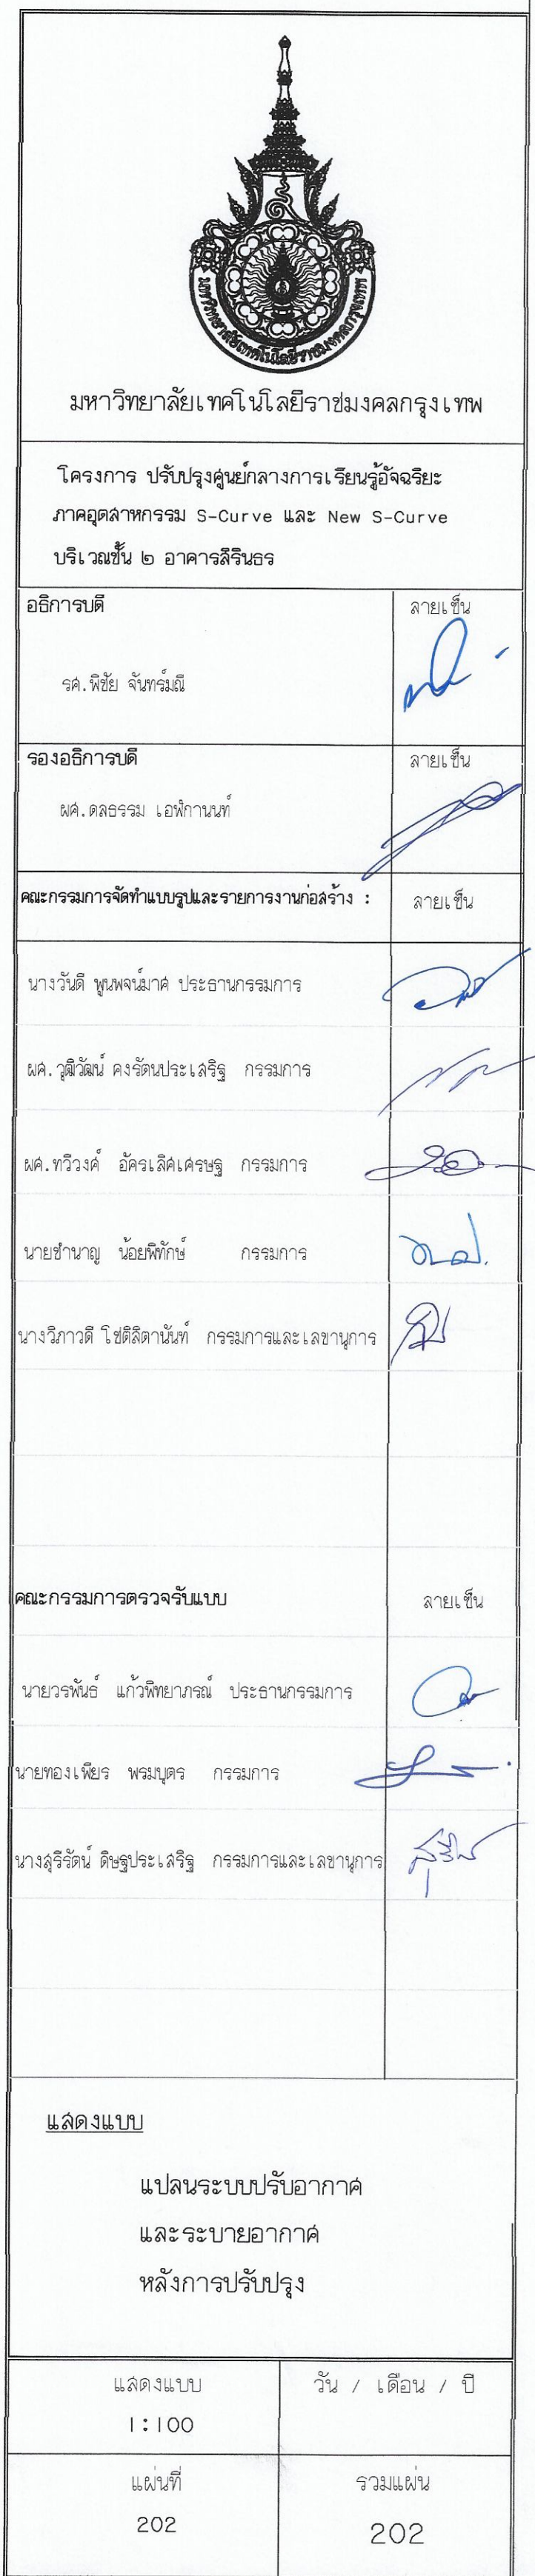 มหาวิทยาลัยเทคโนโลยีราชมงคลกรุงเทพ
มหาวิทยาลัยเทคโนโลยีราชมงคลกรุงเทพ
โครงการ ปรับปรุงศูนย์กลางการเรียนรู้อัจฉริยะ
ภาคอุตสาหกรรม S-Curve และ New S-Curve
บริเวณชั้น ๒ อาคารสิรินธร
อธิการบดี ลายเซ็น
รศ.พิชัย จันทร์มณี
รองอธิการบดี ลายเซ็น
ผศ.ดลธรรม เอฬกานนท์
คณะกรรมการจัดทำแบบรูปและรายการงานก่อสร้าง : ลายเซ็น
นางวันดี พูนพจน์มาศ ประธานกรรมการ
ผศ.วุฒิวัฒน์ คงรัตนประเสริฐ กรรมการ
ผศ.ทวีวงศ์ อัครเลิศเศรษฐ กรรมการ
นายชำนาญ น้อยพิทักษ์ กรรมการ
นางวิภาวดี โชติสิตานันท์ กรรมการและเลขานุการ
คณะกรรมการตรวจรับแบบ ลายเซ็น
นายวรพันธ์ แก้วพิทยาภรณ์ ประธานกรรมการ
นายทองเพียร พรมบุตร กรรมการ
นางสุรีรัตน์ ดิษฐประเสริฐ กรรมการและเลขานุการ
แสดงแบบ
แปลนระบบปรับอากาศ
และระบายอากาศ
หลังการปรับปรุง
แสดงแบบ วัน / เดือน / ปี
1:100
แผ่นที่ รวมแผ่น
202 202